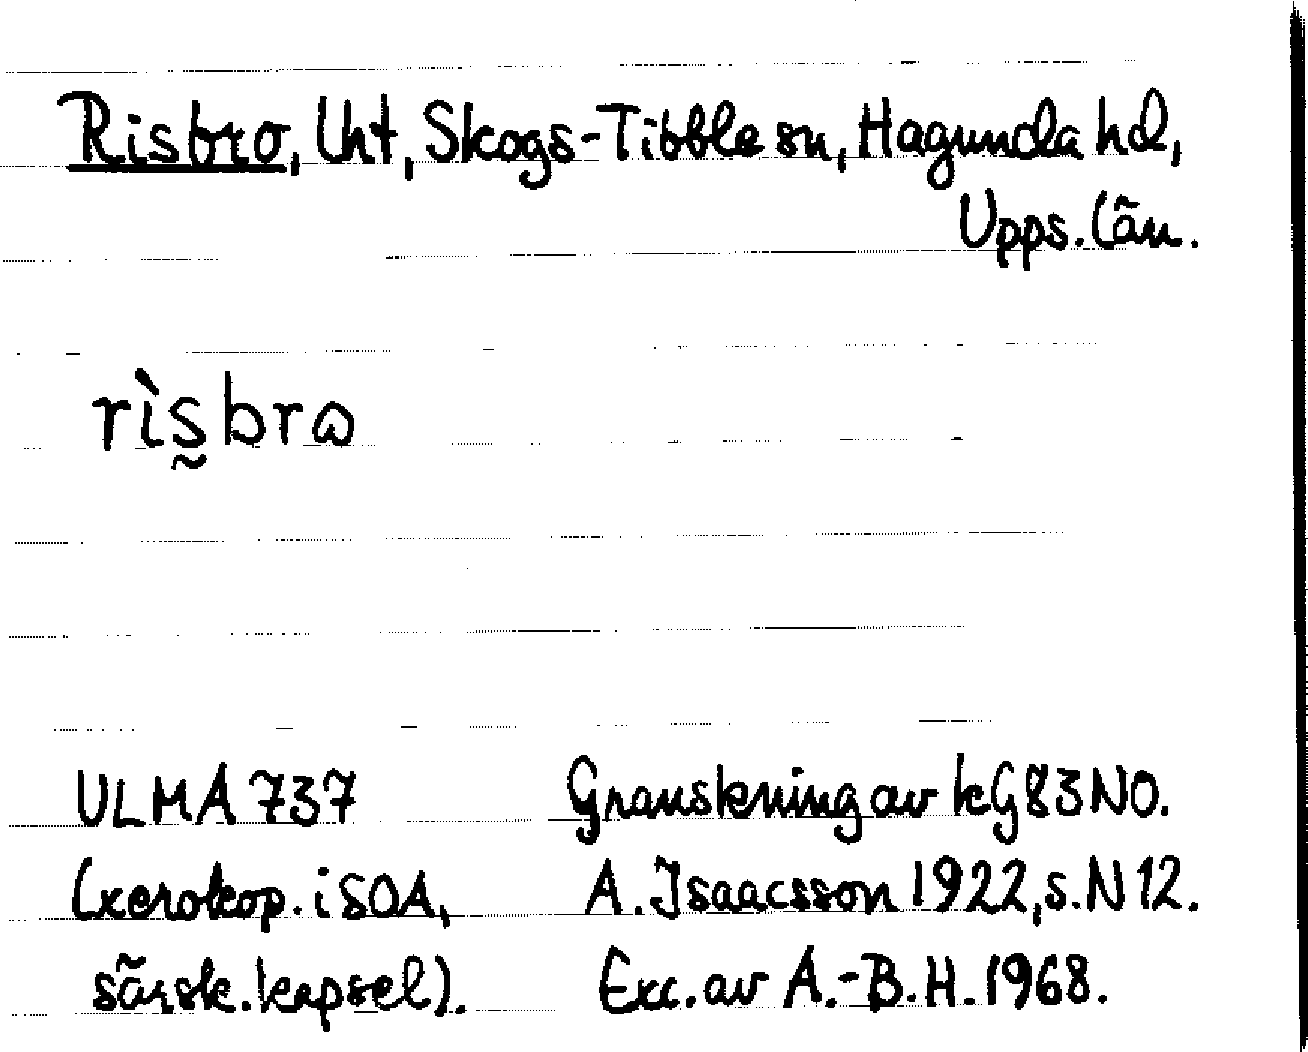 Risbro, Uht, Skogs-Tibble sn, Hagunda hd,
Upps. län.
rìs̰brɷ
ULMA 737
(xerokop. i SOA,
särsk. kapsel).
Granskning av kG 83 NO.
A. Isaacsson 1922, s. N 12.
Exc. av A.-B.H. 1968.